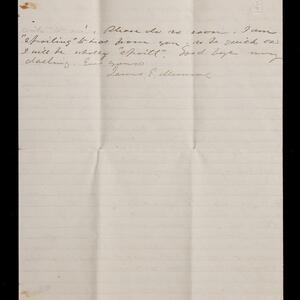 Please do so soon. I am
"spoiling" to hear from you, so be quick or
I will be wholly "spoilt". Good bye my
darling. Ever yours
James E.